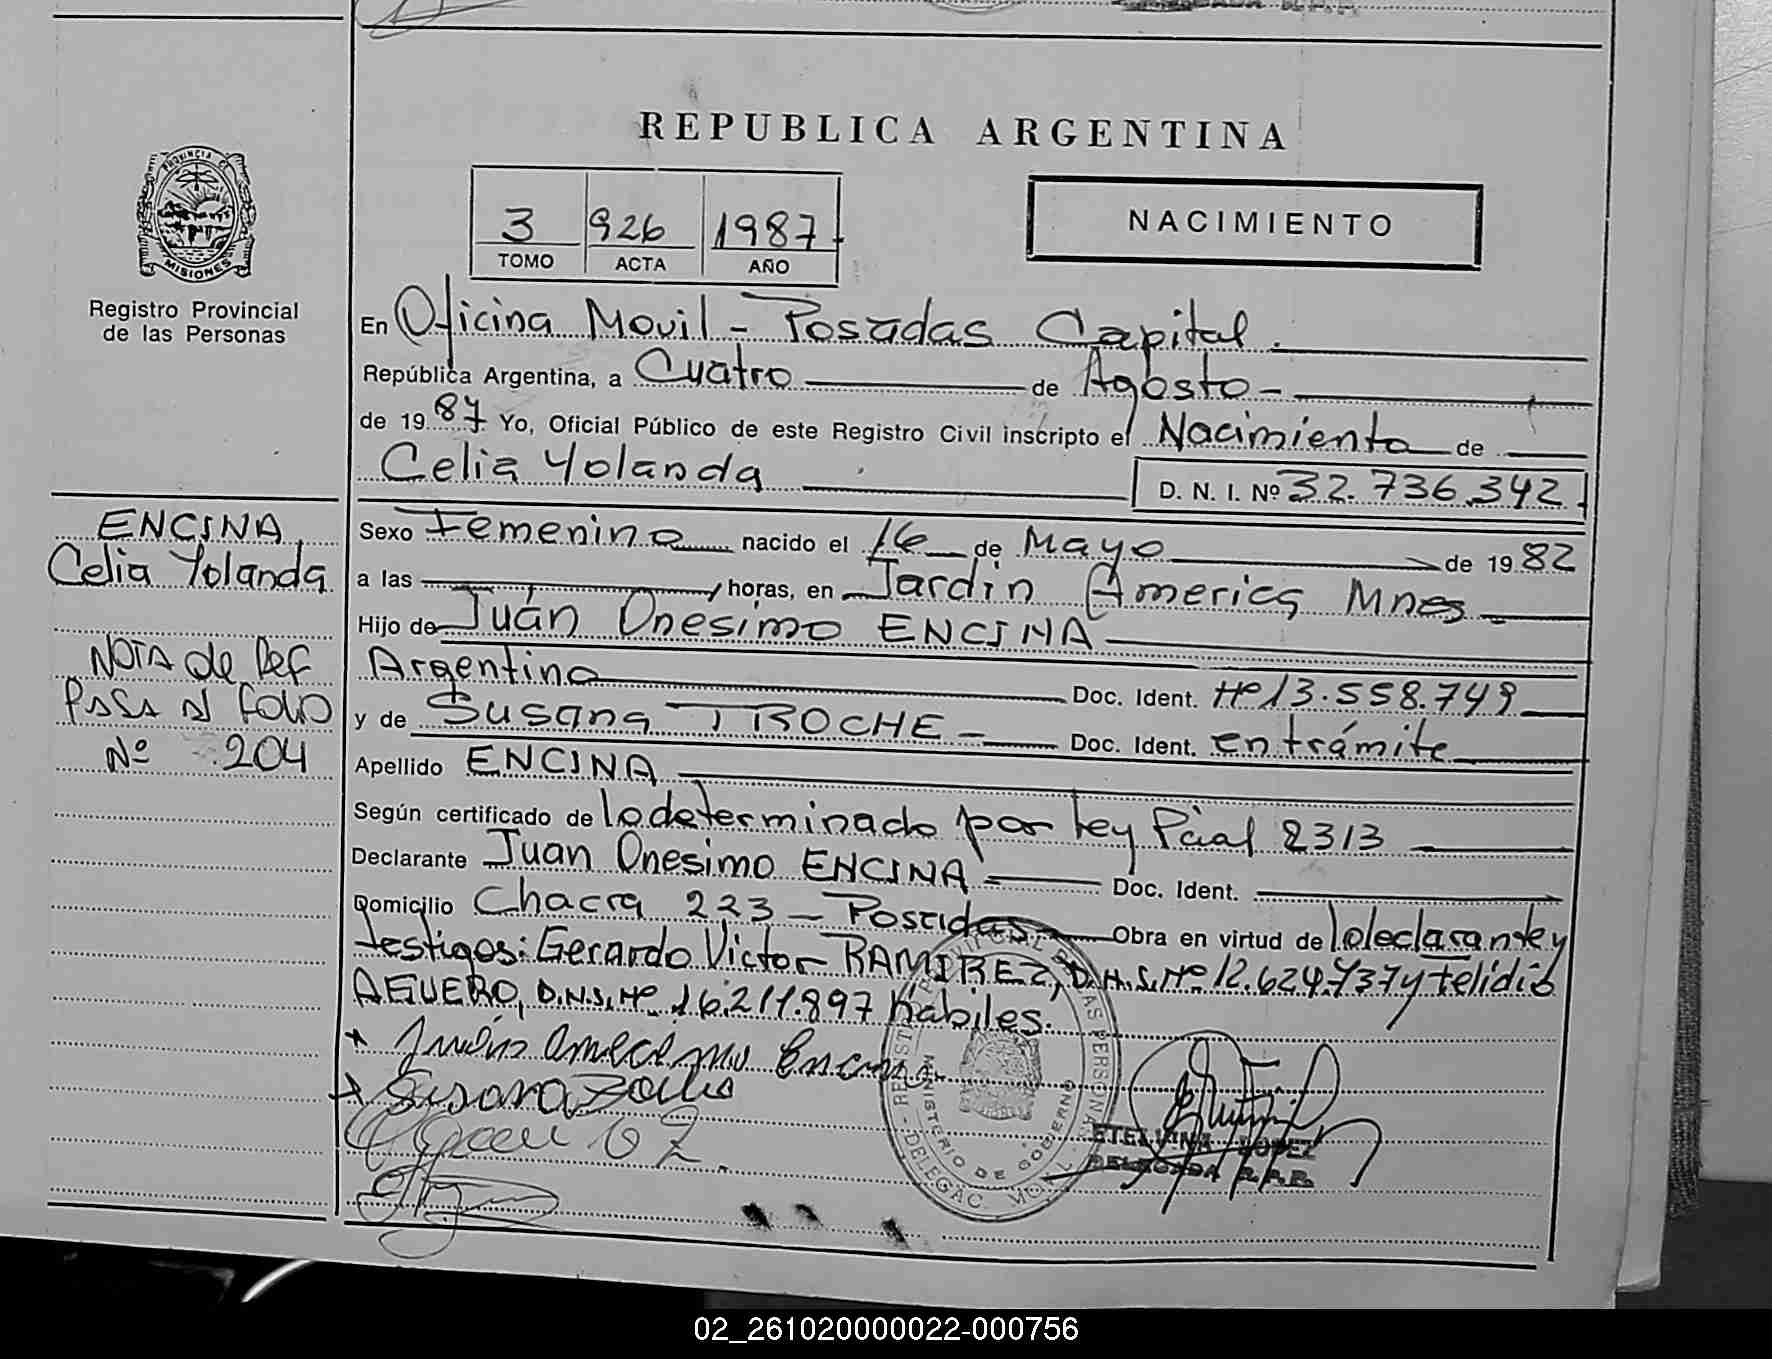 REPUBLICA ARGENTINA
PROVINCIA DE
MISIONES
Registro Provincial
de las Personas
3 926 1987
TOMO ACTA AÑO
NACIMIENTO
En Oficina Movil - Posadas Capital.
República Argentina, a Cuatro de Agosto -
de 1987 Yo, Oficial Público de este Registro Civil inscripto el Nacimiento de
Celia Yolanda
D. N. I. Nº 32.736.342
ENCINA
Celia Yolanda
NOTA de Def
PASA al FOLIO
Nº 204
Sexo Femenino nacido el 16 de Mayo de 1982
a las horas, en Jardin America Mnes
Hijo de Juán Onésimo ENCINA
Argentino Doc. Ident. Nº 13.558.749
y de Susana TROCHE - Doc. Ident. en trámite
Apellido ENCINA
Según certificado de lo determinado por Ley Pcial 2313
Declarante Juan Onesimo ENCINA Doc. Ident.
Domicilio Chacra 223 - Posadas Obra en virtud de lo declarante y
testigos: Gerardo Victor RAMIREZ, D.N.I. Nº 12.624.737 y telidio
AGUERO, D.N.I. Nº 16.211.897 habiles.
Susana
MINISTERIO DE GOBIERNO
DELEGAC. MOVIL
ETELVINA LOPEZ
DELEGADA R.P.P.
02_261020000022-000756